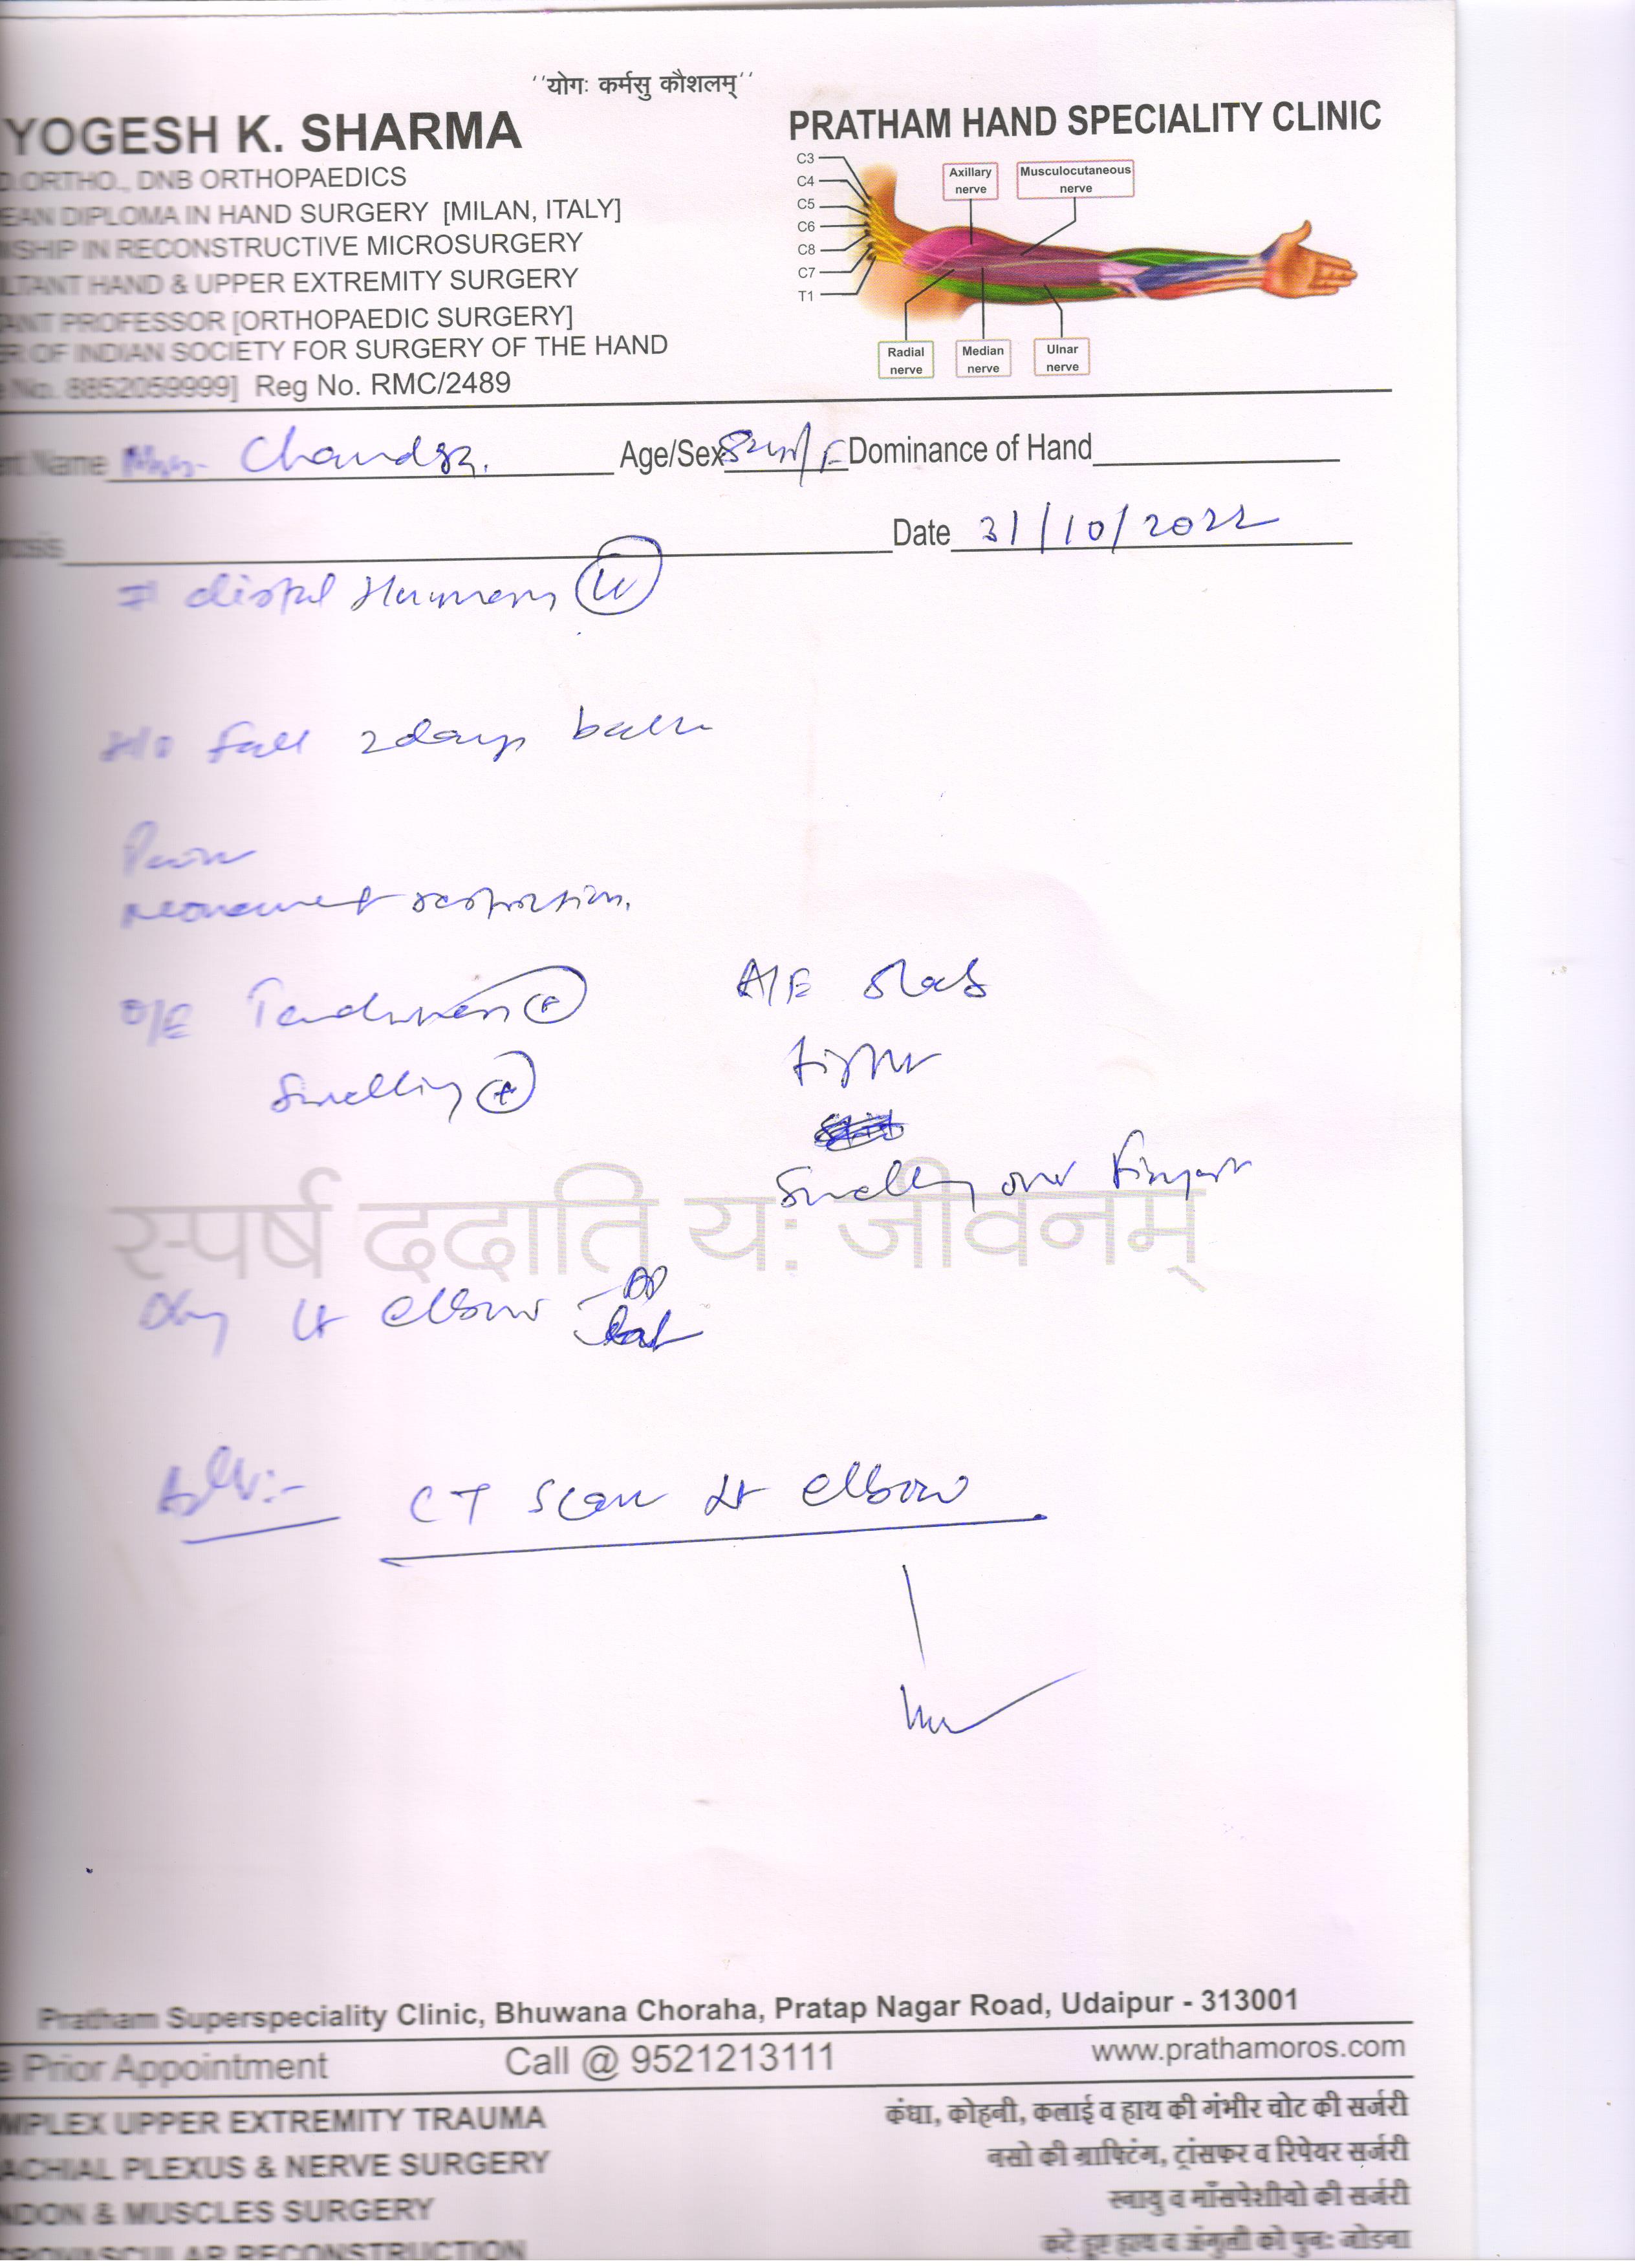 ''योगः कर्मसु कौशलम्''
YOGESH K. SHARMA
ORTHO., DNB ORTHOPAEDICS
EAN DIPLOMA IN HAND SURGERY [MILAN, ITALY]
WSHIP IN RECONSTRUCTIVE MICROSURGERY
LTANT HAND & UPPER EXTREMITY SURGERY
ANT PROFESSOR [ORTHOPAEDIC SURGERY]
ER OF INDIAN SOCIETY FOR SURGERY OF THE HAND
No. 8852059999] Reg No. RMC/2489
PRATHAM HAND SPECIALITY CLINIC
C3
C4
C5
C6
C8
C7
T1
Axillary nerve
Musculocutaneous nerve
Radial nerve
Median nerve
Ulnar nerve
nt Name Mrs. Chandra. Age/Sex /F Dominance of Hand
nosis Date 31/10/2022
# distal Humerus Lt
H/o fall 2 days back
Pain
movement restriction.
O/E Tenderness +
Swelling +
A/E slab
tight
Swelling over finger
Xray Lt elbow AP
Lat
Adv:- CT Scan Lt elbow
स्पर्ष ददाति यः जीवनम्
Pratham Superspeciality Clinic, Bhuwana Choraha, Pratap Nagar Road, Udaipur - 313001
e Prior Appointment Call @ 9521213111 www.prathamoros.com
MPLEX UPPER EXTREMITY TRAUMA
ACHIAL PLEXUS & NERVE SURGERY
NDON & MUSCLES SURGERY
ROVASCULAR RECONSTRUCTION
कंधा, कोहनी, कलाई व हाथ की गंभीर चोट की सर्जरी
नसो की ग्राफ्टिंग, ट्रांसफर व रिपेयर सर्जरी
स्नायु व माँसपेशीयो की सर्जरी
कटे हुए हाथ व अंगुली को पुनः जोडना